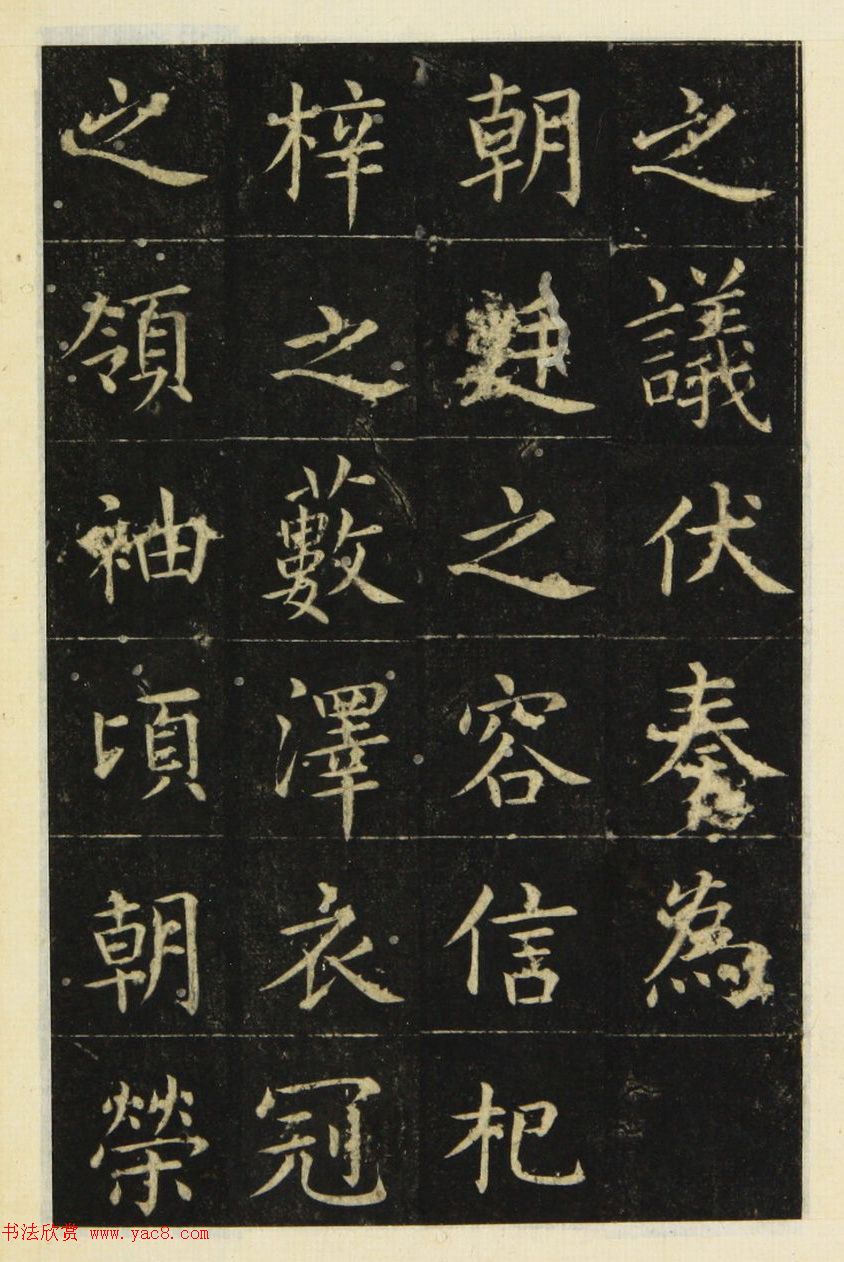 之議伏奏為
朝廷之容信杞
梓之藪澤衣冠
之領袖頃朝榮
书法欣赏 www.yac8.com